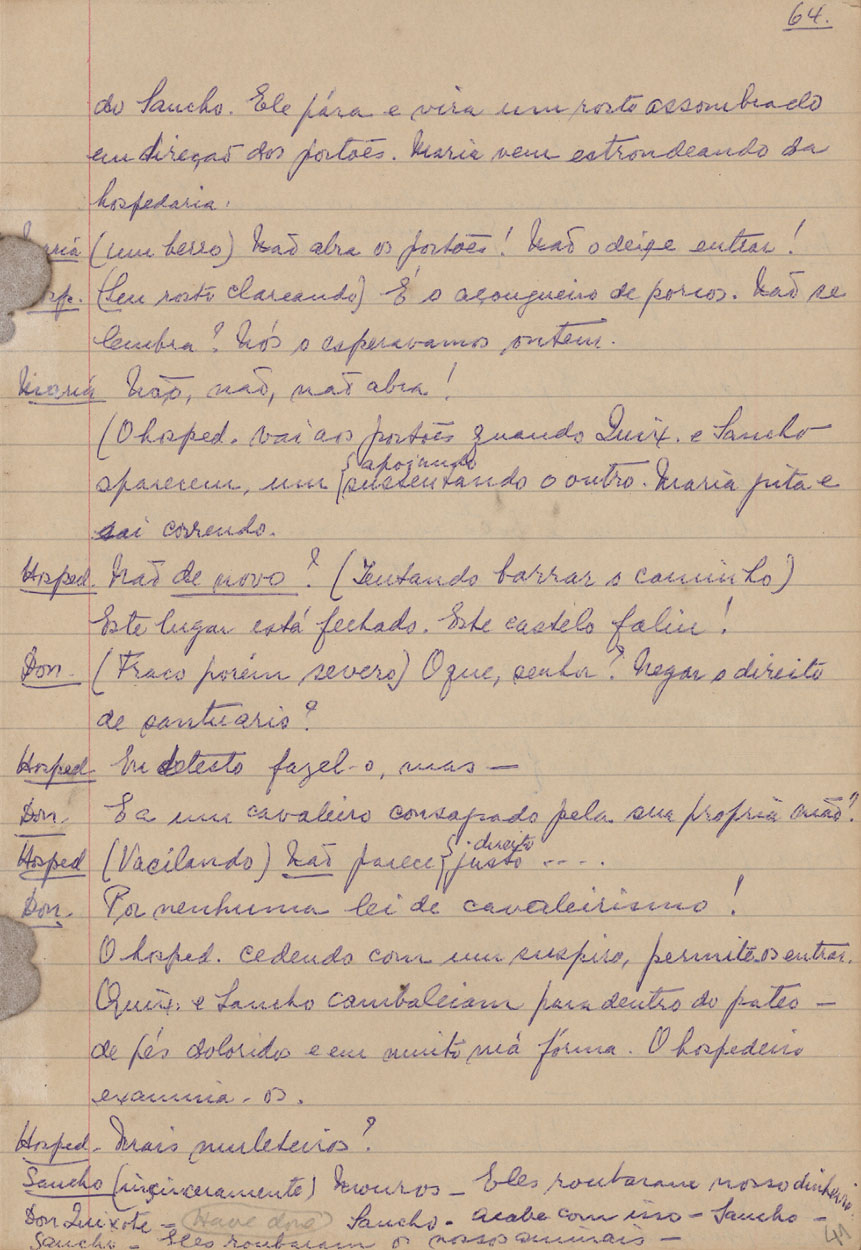 64.
do Sancho. Ele pára e vira um rosto assombrado
em direção dos portões. Maria vem estrondeando da
hospedaria.
Maria (um berro) Não abra os portões! Não o deixe entrar!
Hosp. (Seu rosto clareando) É o açougueiro de porcos. Não se
lembra? Nós o esperavamos ontem.
Maria Não, não, não abra!
(O hosped. vai aos portões quando Quix. e Sancho
{apoiando
aparecem, um {sustentando o outro. Maria grita e
sai correndo.
Hosped. Não de novo? (Tentando barrar o caminho)
Este lugar está fechado. Este castelo faliu!
Don. (Fraco porém severo) O que, senhor? Negar o direito
de santuario?
Hosped Eu detesto fazel-o, mas —
Don. E a um cavaleiro consagrado pela sua propria mão?
direito
Hosped (Vacilando) Não parece {justo ....
Don. Por nenhuma lei de cavaleirismo!
O hosped. cedendo com um suspiro, permite-os entrar.
Quix. e Sancho cambaleiam para dentro do pateo —
de pés doloridos e em muito má fórma. O hospedeiro
examina-os.
Hosped. Mais muleteiros?
Sancho (insinceramente) Mouros — Eles roubaram nosso dinheiro
Don Quixote — (Have done) Sancho - acabe com isso — Sancho —
Sancho — Eles roubaram os nossos animais —
41